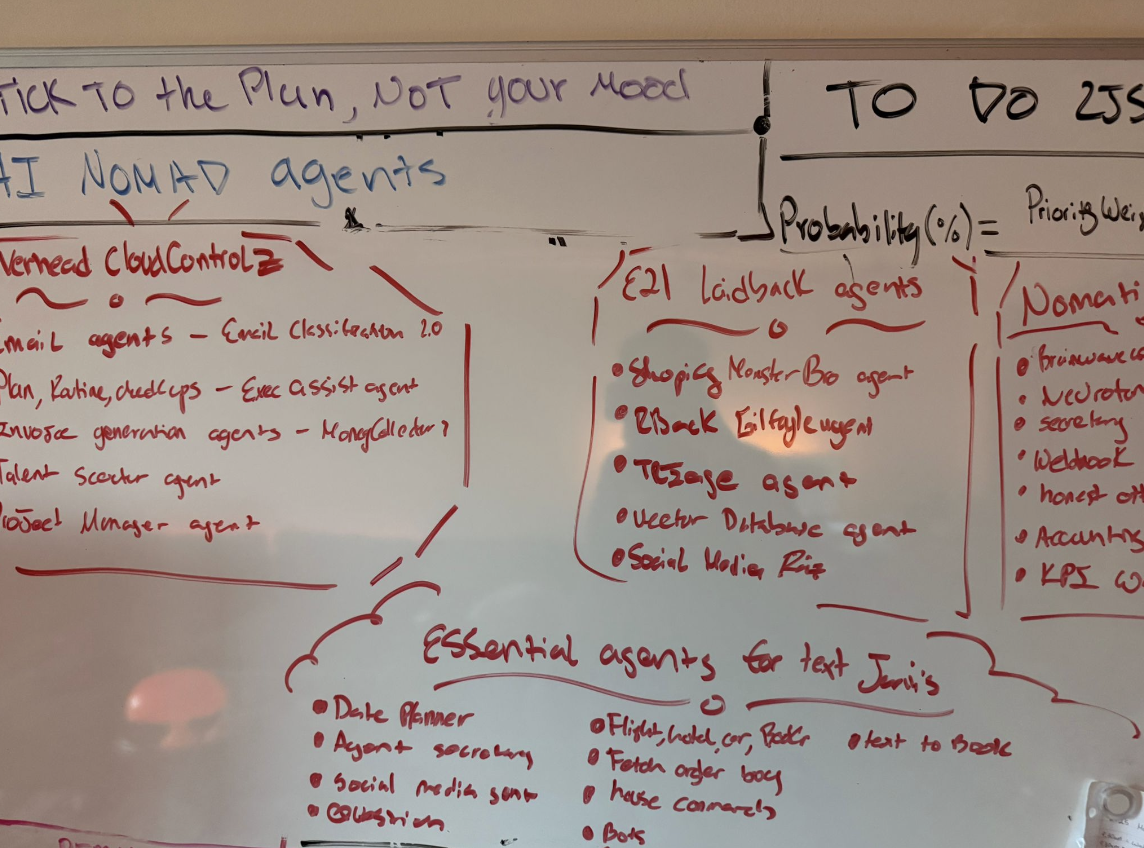 TICK TO the Plan, NOT your Mood
TO DO
AI NOMAD agents
Probability (%) =
Priority Weig
verhead CloudControlZ
Email agents – Email Classification 2.0
Plan, Routine, checkups – Exec assist agent
Invoice generation agents – MoneyCollector?
Talent Scouter agent
Project Manager agent
E21 laidback agents
MonsterBro agent
RBack agent
agent
Vector Database agent
Social Media Riz
Nomati
Brainwave
Neuroton
secretary
Webhook
honest
Accounting
KPI
Essential agents for text Jarvis
Date Planner
Agent secretary
Social media
Flight, hotel, car, Bookr
Fetch order boy
house commands
Bots
text to Book